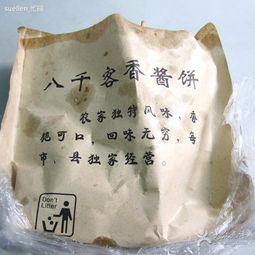 suellen_忙碌
八千客香酱饼
农家独特风味，香
脆可口，回味无穷，每
市、县独家经营。
Don't
Litter